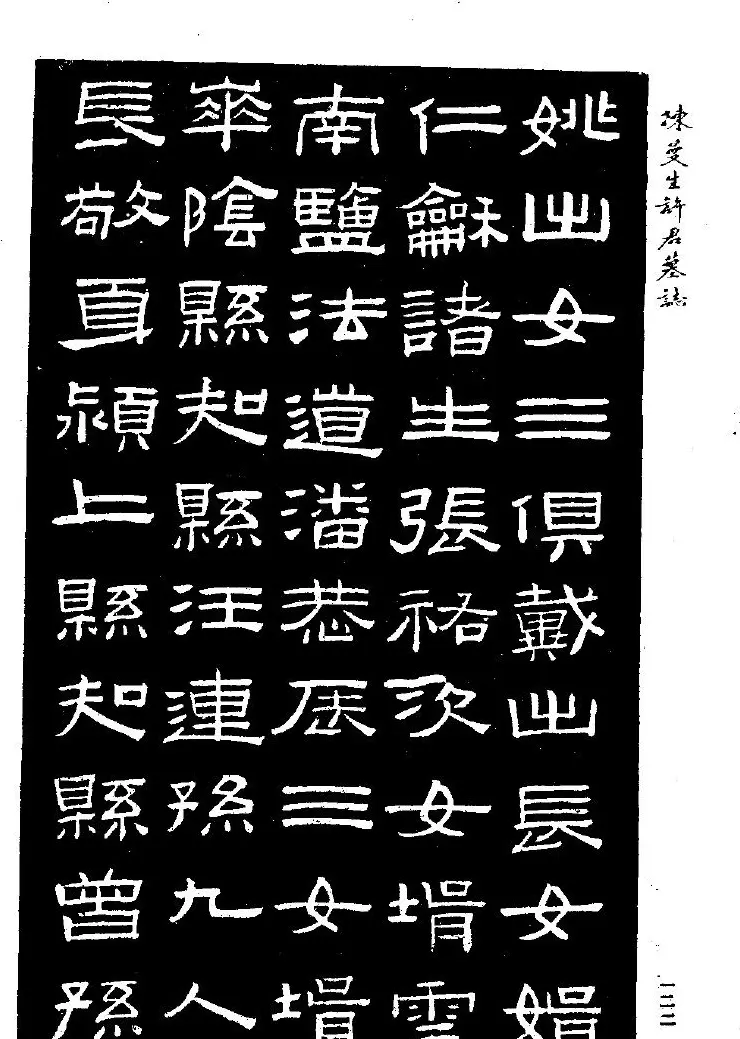 陳曼生許君墓誌
姚出女三俱戴出長女婿
仁龢諸生張祐次女壻雲
南鹽法道潘恭辰三女壻
華陰縣知縣汪連孫九人
長敬直潁上縣知縣曾孫
一二二